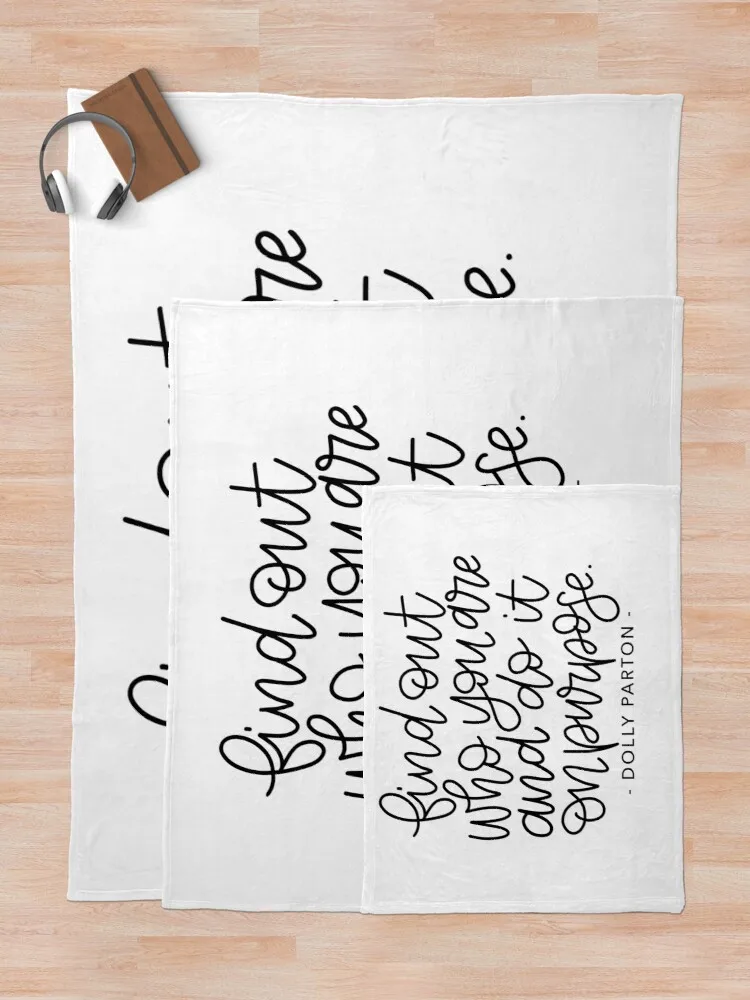 find out
who you are
and do it
on purpose.
- DOLLY PARTON -
find out
who you are